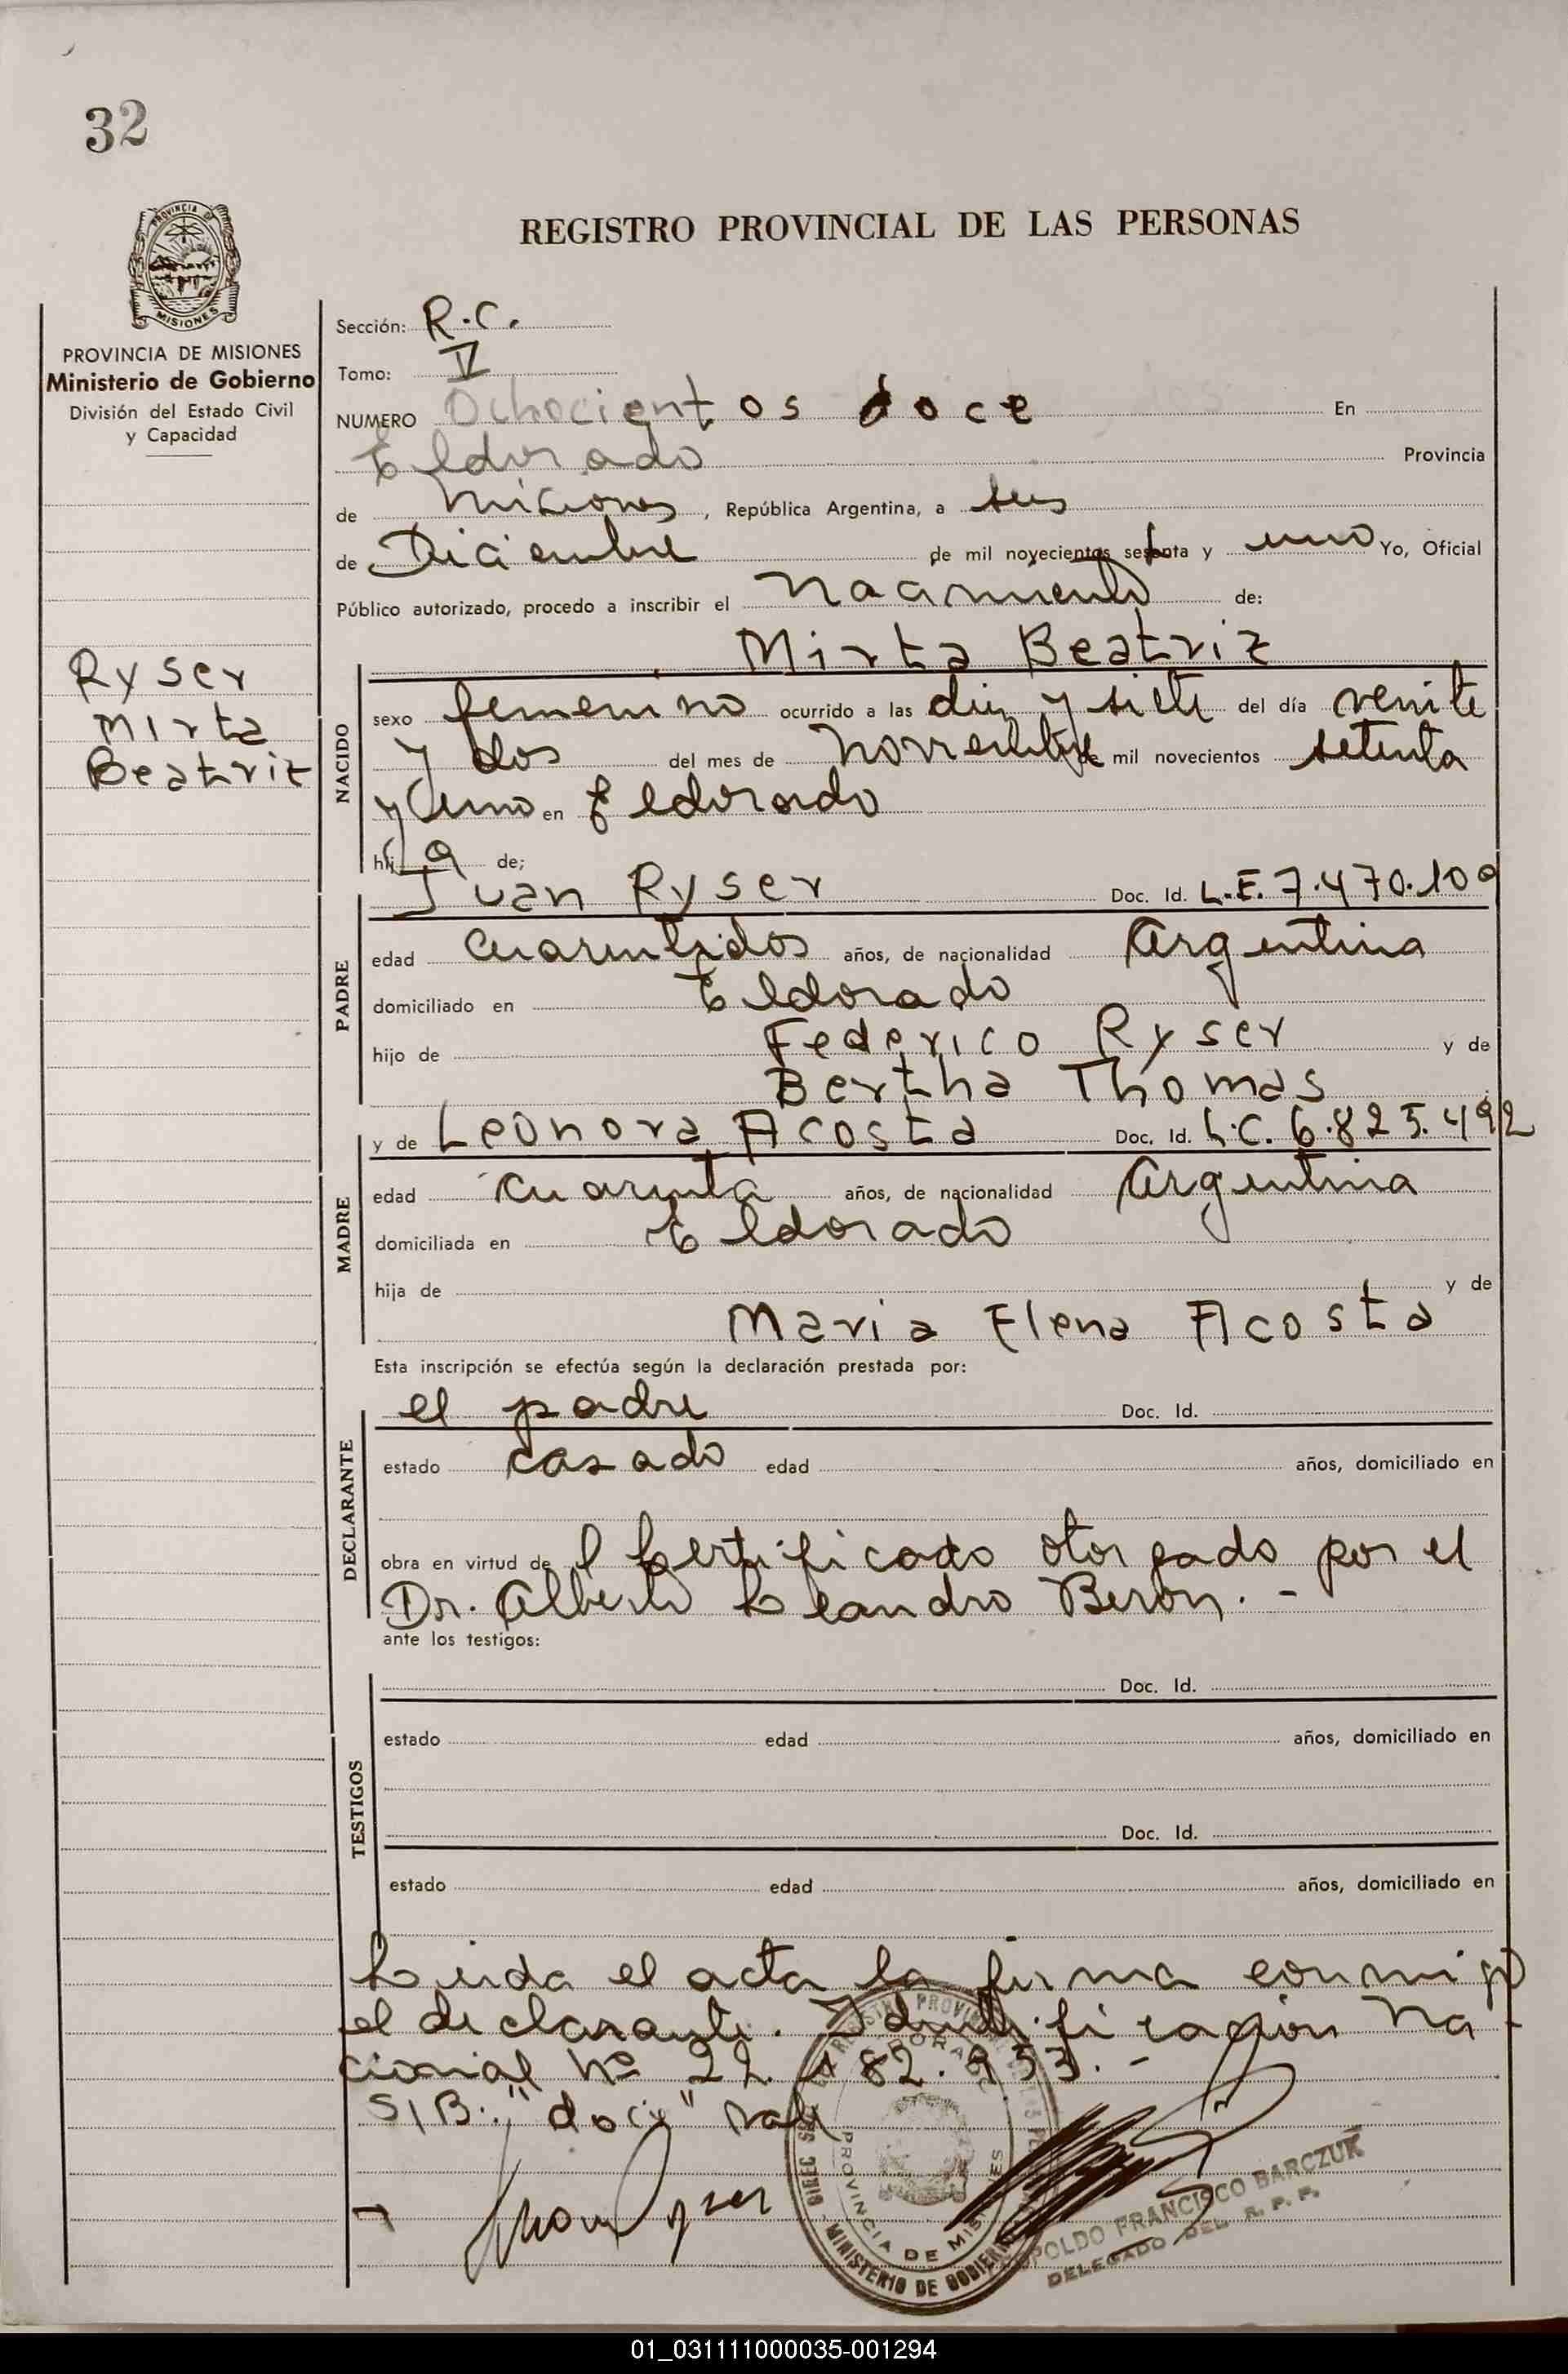 32
PROVINCIA DE
MISIONES
REGISTRO PROVINCIAL DE LAS PERSONAS
PROVINCIA DE MISIONES
Ministerio de Gobierno
División del Estado Civil
y Capacidad
Ryser
Mirta
Beatriz
Sección: R.C.
Tomo: V
NUMERO Ochocientos doce En
Eldorado Provincia
de Misiones, República Argentina, a seis
de Diciembre de mil novecientos setenta y uno Yo, Oficial
Público autorizado, procedo a inscribir el nacimiento de:
Mirta Beatriz
NACIDO
sexo femenino ocurrido a las diez y siete del día veinte
y dos del mes de noviembre de mil novecientos setenta
y uno en Eldorado
hija de;
PADRE
Juan Ryser Doc. Id. L.E. 7.470.109
edad cuarentidos años, de nacionalidad Argentina
domiciliado en Eldorado
hijo de Federico Ryser y de
Bertha Thomas
MADRE
y de Leonora Acosta Doc. Id. L.C. 6.825.492
edad cuarenta años, de nacionalidad Argentina
domiciliada en Eldorado
hija de y de
Maria Elena Acosta
Esta inscripción se efectúa según la declaración prestada por:
DECLARANTE
el padre Doc. Id.
estado casado edad años, domiciliado en
obra en virtud del Certificado otorgado por el
Dr. Alberto Leandro Beron. -
ante los testigos:
TESTIGOS
Doc. Id.
estado edad años, domiciliado en
Doc. Id.
estado edad años, domiciliado en
Leida el acta la firma conmigo
el declarante. Identificación Na
cional Nº 22.182.953. -
S/B: "doce" Vale
Juan Ryser
PROVINCIA DE MISIONES
MINISTERIO DE GOBIERNO
FRANCISCO BARCZUK
DELEGADO DEL R. P. P.
01_031111000035-001294